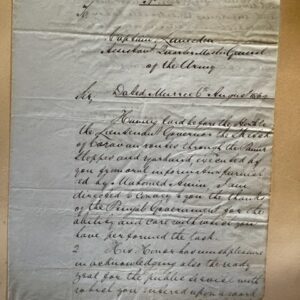 To
Captain Lumsden
Assistant Quarter Master General
of the Army
Sir, Dated Murree 6th August 1860
Having laid before the Honble
the Lieutenant Governor the Sketch
of Caravan routes through the
Steppes and Yarkand executed by
you from oral information furnish
ed by Mahomed Ameen I am
directed to convey you the thanks
of the Punjab Government for the
ability and care with which you
have performed the task.
2 His Honor has much pleasure
in acknowledging also the ready
zeal for the public service with
which you entered upon a work